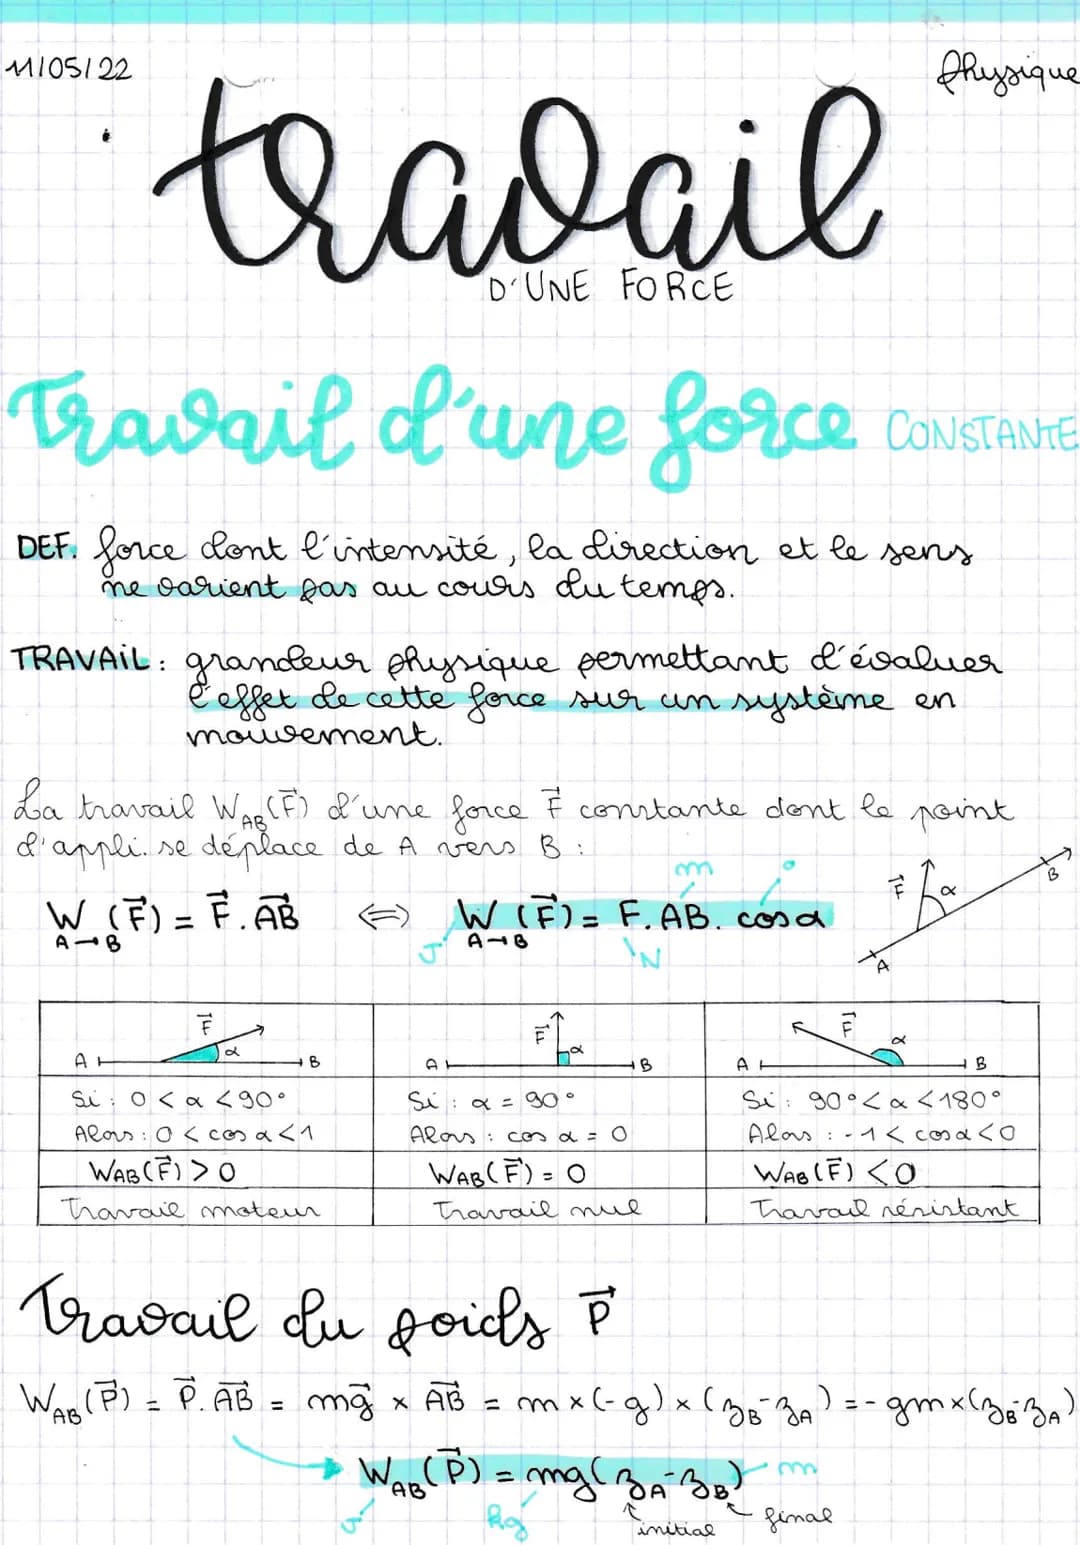 11/05/22
Physique
travail
D'UNE FORCE
Travail d'une force CONSTANTE
DEF. force dont l'intensité, la direction et le sens
ne varient pas au cours du temps.
TRAVAIL : grandeur physique permettant d'évaluer
l'effet de cette force sur un système en
mouvement.
La travail W_AB(F⃗) d'une force F⃗ constante dont le point
d'appli. se déplace de A vers B :
m °
W_A→B (F⃗) = F⃗.AB⃗ ⇔ W_A→B (F⃗) = F.AB. cos α
J N
F⃗ α A B
F⃗ A α B
F⃗ A α B
F⃗ A α B
Si : 0 < α < 90° Si : α = 90° Si : 90° < α < 180°
Alors : 0 < cos α < 1 Alors : cos α = 0 Alors : -1 < cos α < 0
W_AB(F⃗) > 0 W_AB(F⃗) = 0 W_AB(F⃗) < 0
Travail moteur Travail nul Travail résistant
Travail du poids P⃗
W_AB(P⃗) = P⃗.AB⃗ = mg⃗ × AB⃗ = m × (-g) × (z_B-z_A) = - gm × (z_B-z_A)
W_AB(P⃗) = mg(z_A-z_B) m
J kg initial final